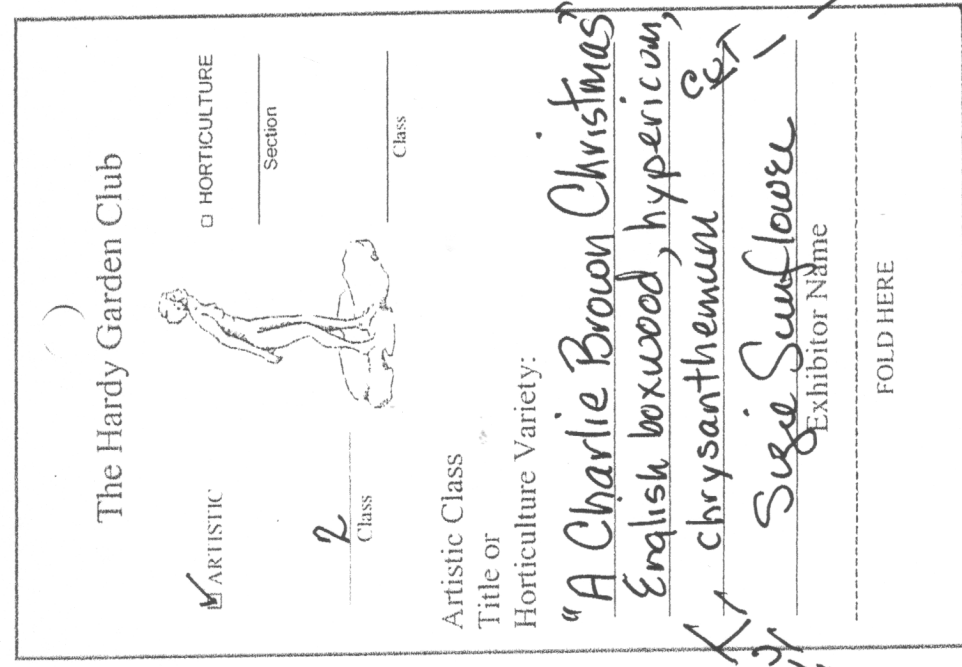 The Hardy Garden Club
ARTISTIC
HORTICULTURE
Section
2
Class
Class
Artistic Class
Title or
Horticulture Variety:
"A Charlie Brown Christmas"
English boxwood, hypericum,
chrysanthemum
CUT
Suzie Sunflower
Exhibitor Name
FOLD HERE